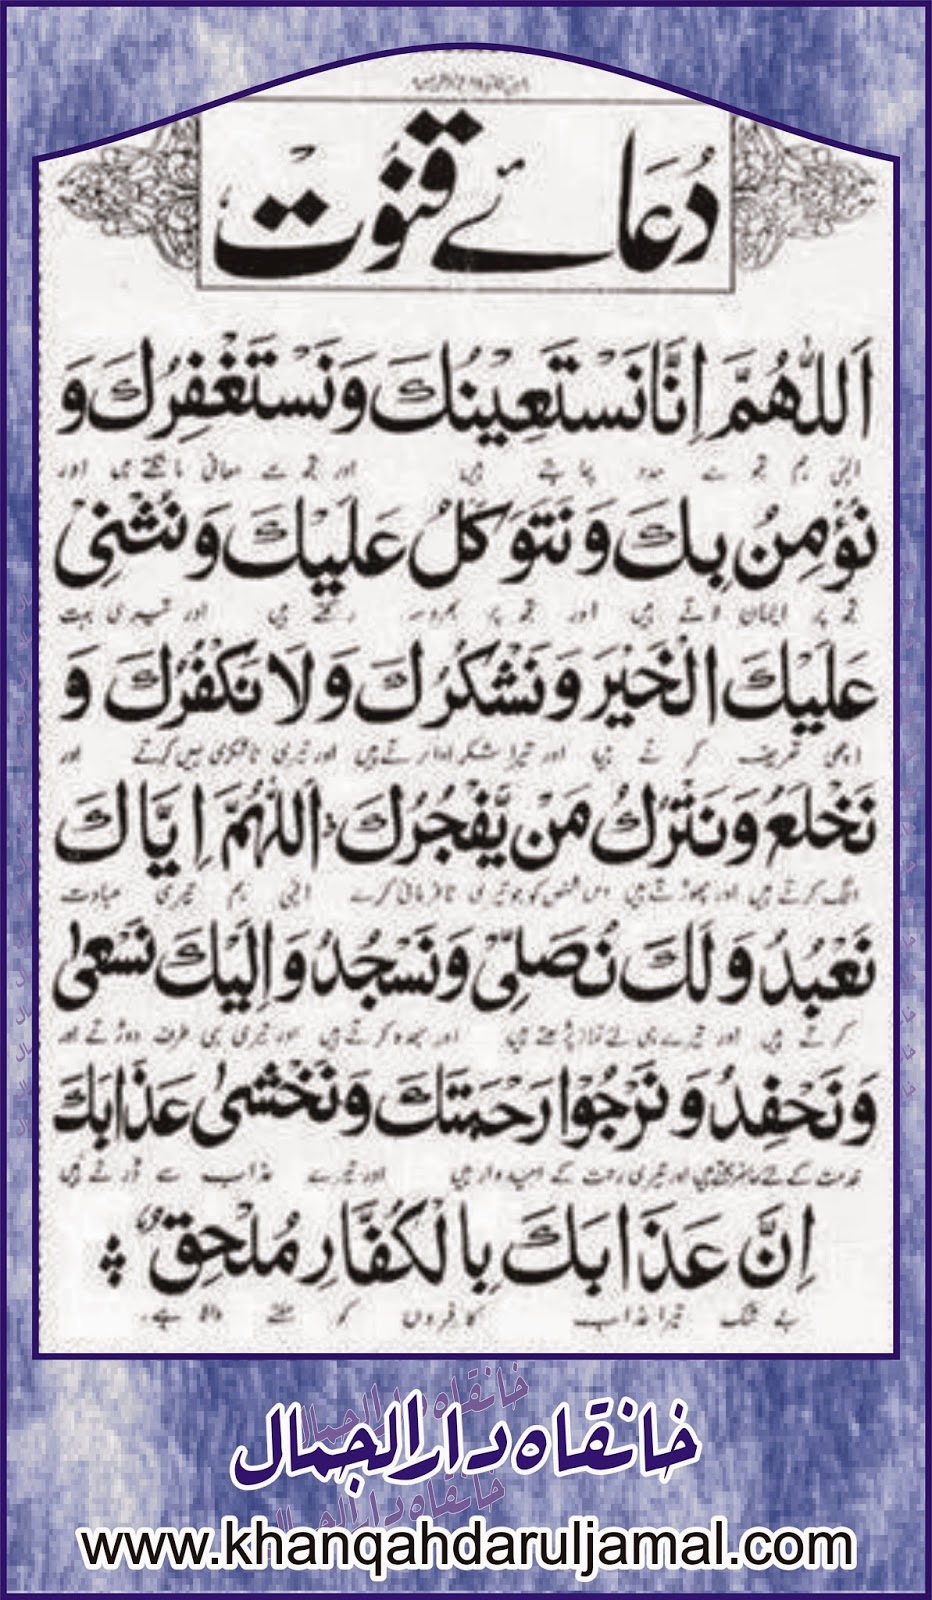 دُعَائے قنُوت
اَللّٰهُمَّ اِنَّا نَسْتَعِيْنُكَ وَنَسْتَغْفِرُكَ وَ
الٰہی ہم تجھ سے مدد چاہتے ہیں اور تجھ سے معافی مانگتے ہیں اور
نُؤْمِنُ بِكَ وَنَتَوَكَّلُ عَلَيْكَ وَنُثْنِیْ
تجھ پر ایمان لاتے ہیں اور تجھ پر بھروسہ رکھتے ہیں اور تیری بہت
عَلَيْكَ الْخَيْرَ وَنَشْكُرُكَ وَلَا نَكْفُرُكَ وَ
اچھی تعریف کرتے ہیں اور تیرا شکر ادا کرتے ہیں اور تیری ناشکری نہیں کرتے اور
نَخْلَعُ وَنَتْرُكُ مَنْ يَّفْجُرُكَ اَللّٰهُمَّ اِيَّاكَ
الگ کرتے ہیں اور چھوڑتے ہیں اس شخص کو جو تیری نافرمانی کرے الٰہی ہم تیری عبادت
نَعْبُدُ وَلَكَ نُصَلِّیْ وَنَسْجُدُ وَاِلَيْكَ نَسْعٰی
کرتے ہیں اور تیرے ہی لئے نماز پڑھتے ہیں اور سجدہ کرتے ہیں اور تیری ہی طرف دوڑتے اور
وَنَحْفِدُ وَنَرْجُوْا رَحْمَتَكَ وَنَخْشٰی عَذَابَكَ
خدمت کے لئے حاضر ہوتے ہیں اور تیری رحمت کے امیدوار ہیں اور تیرے عذاب سے ڈرتے ہیں
اِنَّ عَذَابَكَ بِالْكُفَّارِ مُلْحِقٌ
بے شک تیرا عذاب کافروں کو ملنے والا ہے۔
خانقاہ دارالجمال
www.khanqahdaruljamal.com